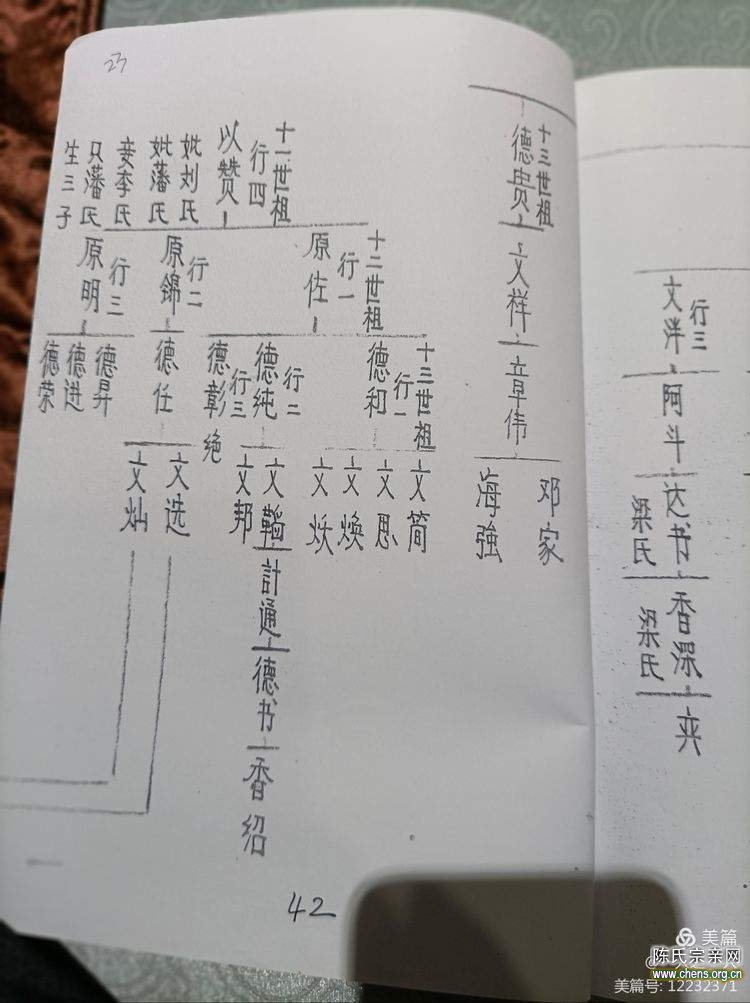 23
十三世祖
德贵
文祥
章伟
邓家
海強
十一世祖
行四
以赞
妣刘氏
妣藩氏
妾李氏
只藩氏
生三子
十二世祖
行一
原佐
行二
原锦
行三
原明
十三世祖
行一
德和
行二
德纯
行三
德彰
绝
德任
德昇
德进
德荣
文简
文思
文焕
文炏
文韜
文邦
文选
文灿
計通
德书
香绍
42
行三
文泮
阿斗
达书
梁氏
香深
梁氏
美篇
陈氏宗亲网
www.chens.org.cn
美篇号: 12232371